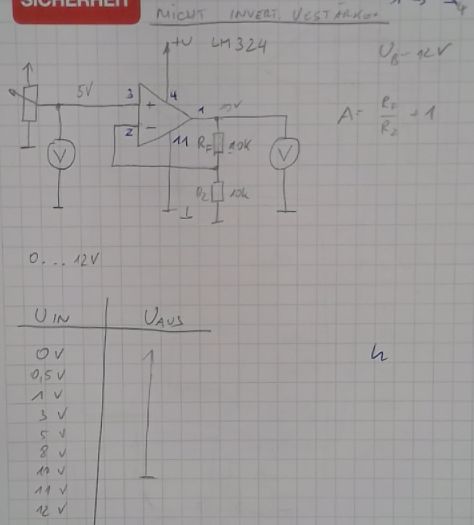 SICHERHEIT
NICHT INVERT. VESTÄRKER
+U LM324
U_B = 12V
5V
3
4
1
2
11
+
−
V
R_F 10K
V
A = R_F / R_2 + 1
R_2 10K
0...12V
U_IN U_AUS
0 V
0,5 V
1 V
3 V
5 V
8 V
10 V
11 V
12 V